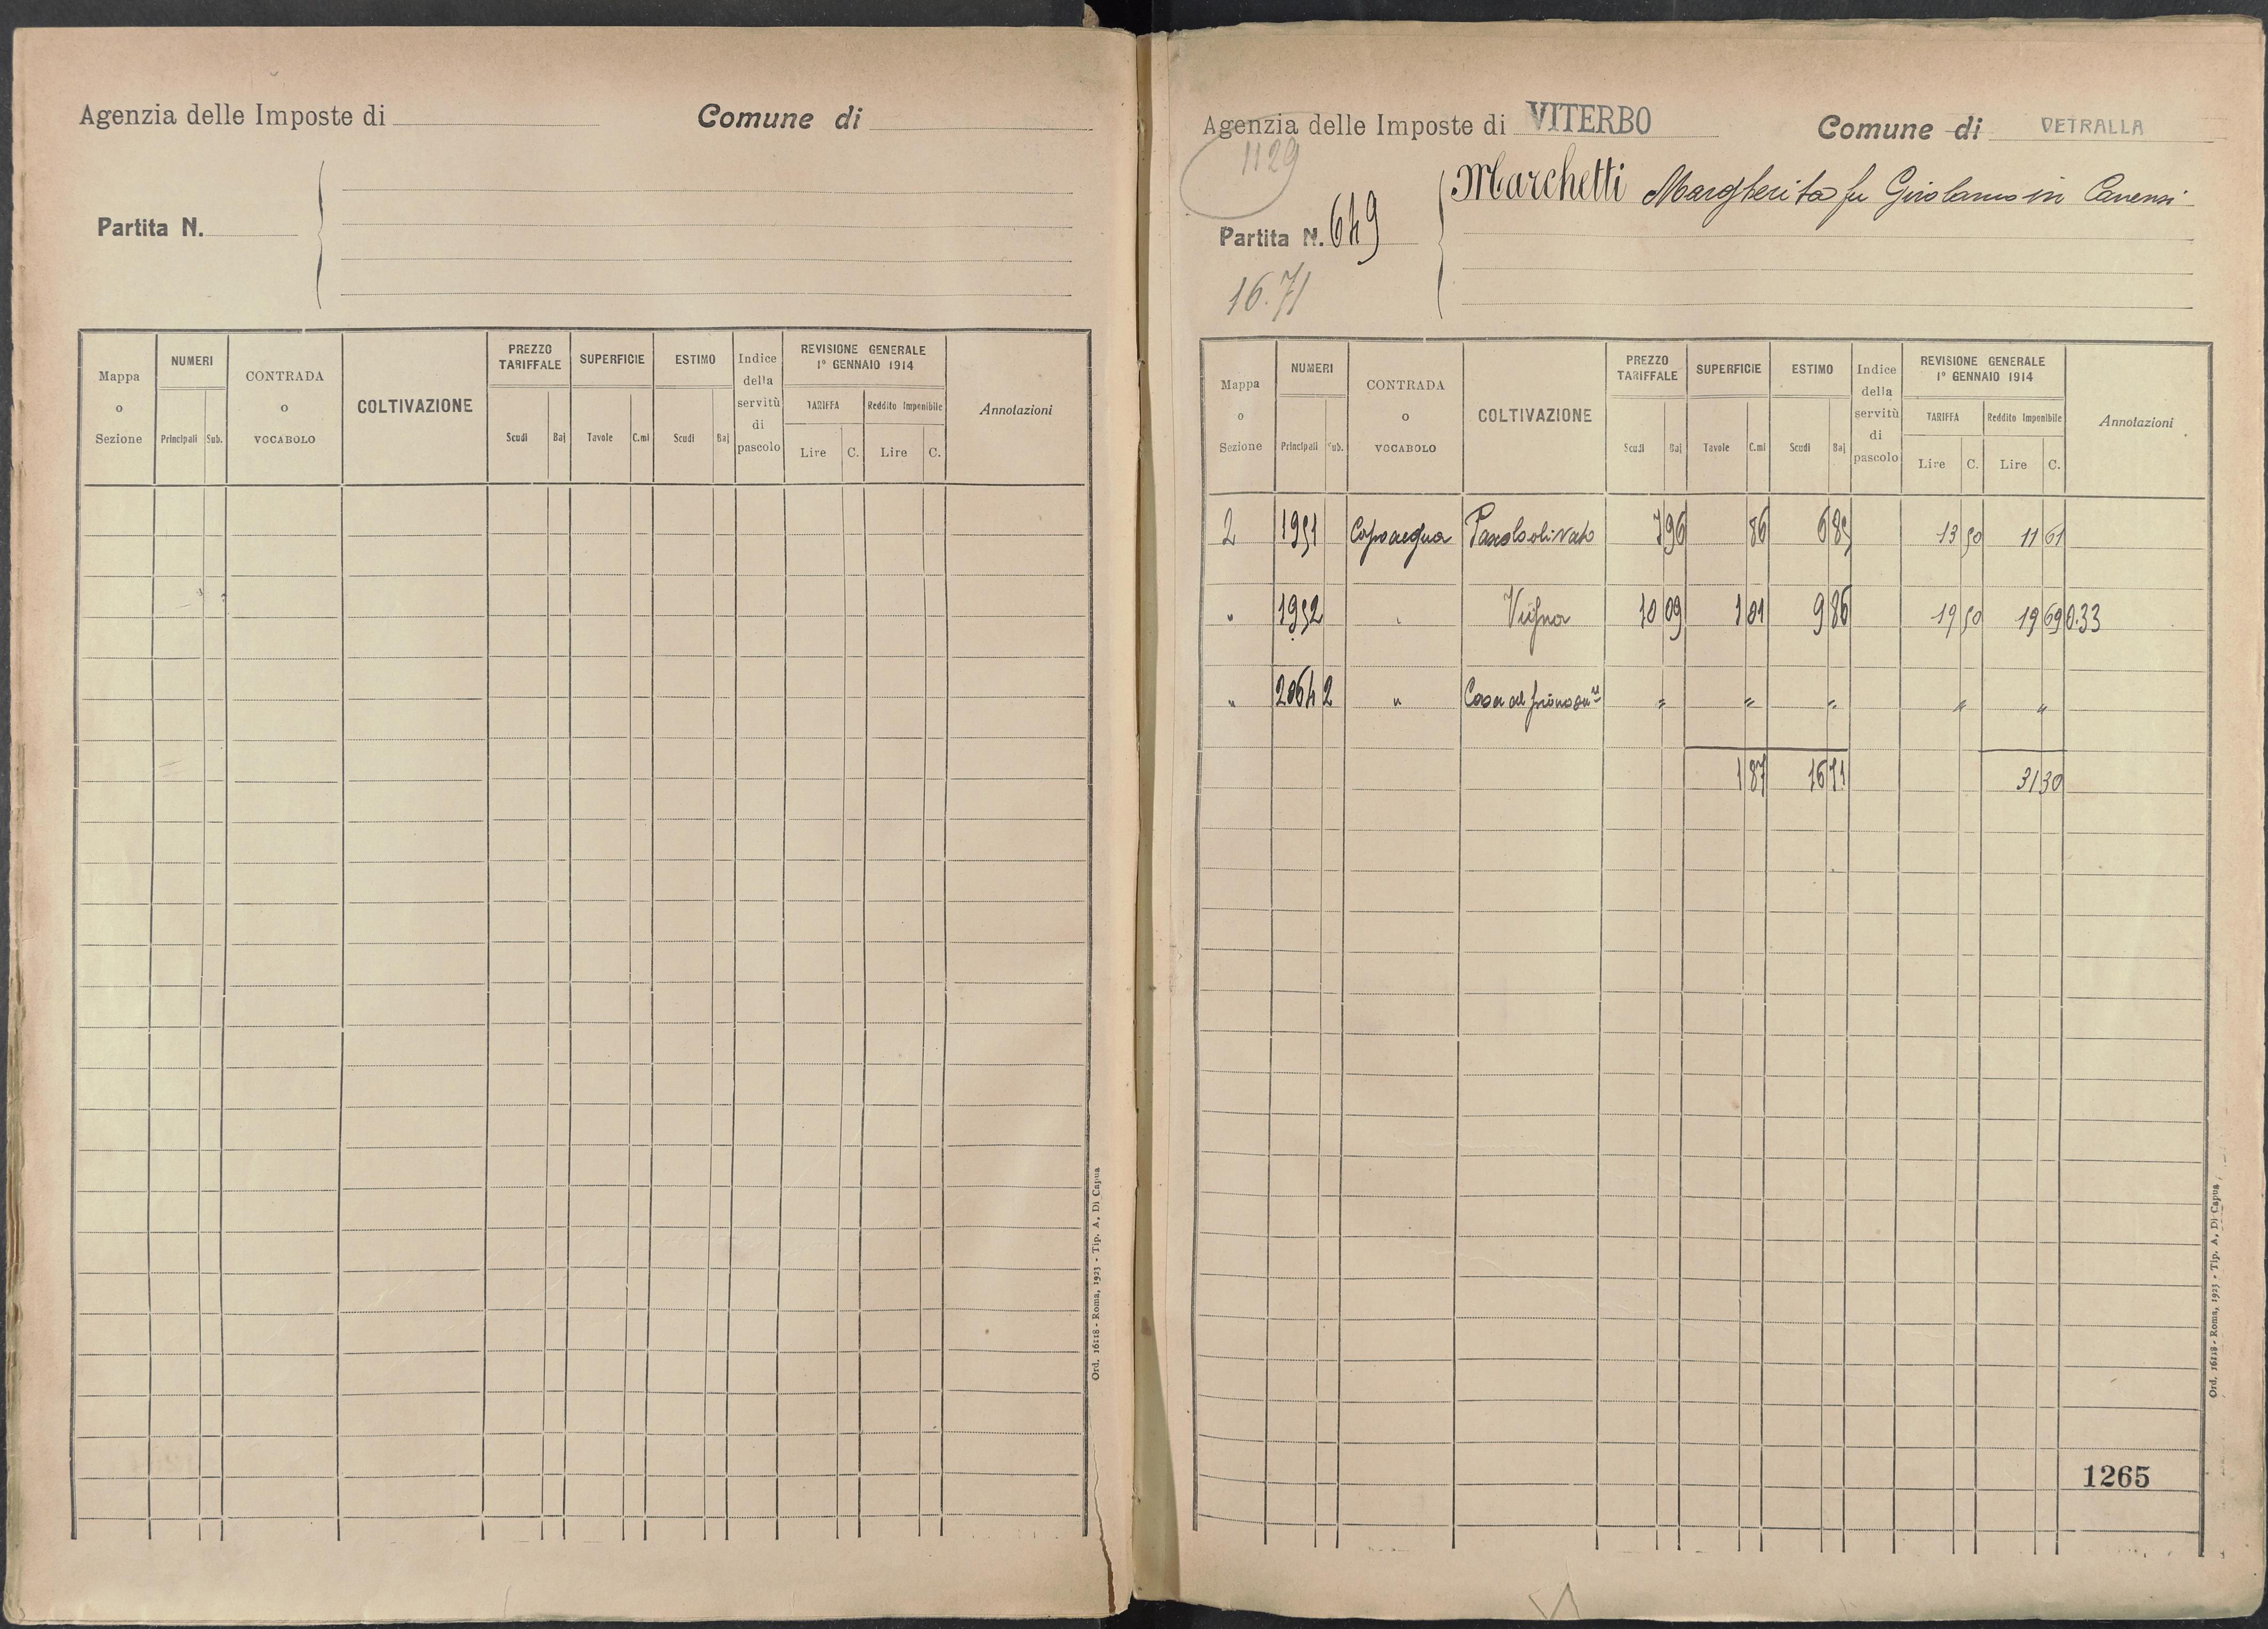 Agenzia delle Imposte di
Comune di
Partita N.
Mappa o Sezione
NUMERI
Principali Sub.
CONTRADA o VOCABOLO
COLTIVAZIONE
PREZZO TARIFFALE
Scudi Baj
SUPERFICIE
Tavole C.mi
ESTIMO
Scudi Baj
Indice della servitù di pascolo
REVISIONE GENERALE
1º GENNAIO 1914
TARIFFA Reddito Imponibile
Lire C. Lire C.
Annotazioni
Ord. 16118 - Roma, 1923 - Tip. A. Di Capua
Agenzia delle Imposte di VITERBO
Comune di VETRALLA
1129
Marchetti Margherita fu Girolamo in Canensi
Partita N. 649
16.71
Mappa o Sezione
NUMERI
Principali Sub.
CONTRADA o VOCABOLO
COLTIVAZIONE
PREZZO TARIFFALE
Scudi Baj
SUPERFICIE
Tavole C.mi
ESTIMO
Scudi Baj
Indice della servitù di pascolo
REVISIONE GENERALE
1º GENNAIO 1914
TARIFFA Reddito Imponibile
Lire C. Lire C.
Annotazioni
2 1951 Capoacqua Pascolo olivato 7 96 86 6 85 13 50 11 61
" 1952 " Vigna 10 09 1 01 9 86 19 50 19 69 0.33
" 2064 2 " Casa al " " " " "
1 87 16 71 31 30
1265
Ord. 16118 - Roma, 1923 - Tip. A. Di Capua